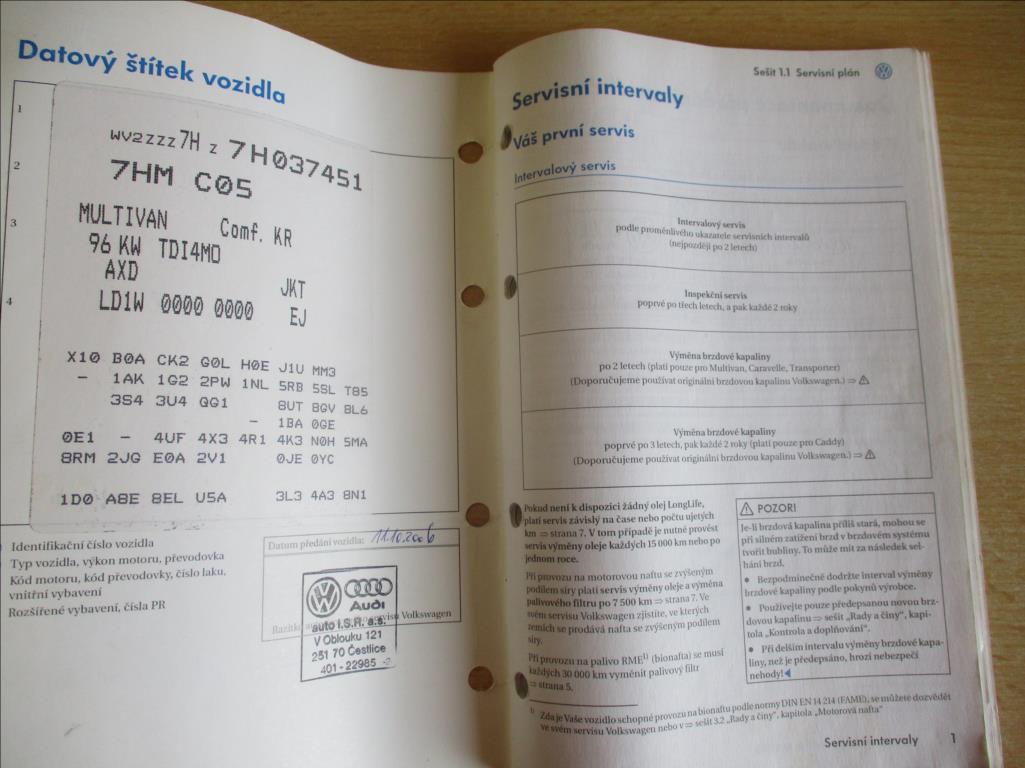 Datový štítek vozidla
1
2
3
4
WV2ZZZ7HZ7H037451
7HM C05
MULTIVAN Comf. KR
96 KW TDI4MO
AXD JKT
LD1W 0000 0000 EJ
X10 B0A CK2 G0L H0E J1U MM3
- 1AK 1G2 2PW 1NL 5RB 5SL T85
3S4 3U4 QG1 8UT 8GV BL6
- 1BA 0GE
0E1 - 4UF 4X3 4R1 4K3 N0H 5MA
8RM 2JG E0A 2V1 0JE 0YC
1D0 A8E 8EL U5A 3L3 4A3 8N1
Identifikační číslo vozidla
Typ vozidla, výkon motoru, převodovka
Kód motoru, kód převodovky, číslo laku,
vnitřní vybavení
Rozšířené vybavení, čísla PR
Datum předání vozidla: 11.10.2006
Audi
servisu Volkswagen
auto I.S.R. a.s.
V Oblouku 121
251 70 Čestlice
401-22985 -2
Sešit 1.1 Servisní plán
Servisní intervaly
Váš první servis
Intervalový servis
Intervalový servis
podle proměnlivého ukazatele servisních intervalů
(nejpozději po 2 letech)
Inspekční servis
poprvé po třech letech, a pak každé 2 roky
Výměna brzdové kapaliny
po 2 letech (platí pouze pro Multivan, Caravelle, Transporter)
(Doporučujeme používat originální brzdovou kapalinu Volkswagen.) ⇒ ⚠
Výměna brzdové kapaliny
poprvé po 3 letech, pak každé 2 roky (platí pouze pro Caddy)
(Doporučujeme používat originální brzdovou kapalinu Volkswagen.) ⇒ ⚠
Pokud není k dispozici žádný olej LongLife,
platí servis závislý na čase nebo počtu ujetých
km ⇒ strana 7. V tom případě je nutné provést
servis výměny oleje každých 15 000 km nebo po
jednom roce.
Při provozu na motorovou naftu se zvýšeným
podílem síry platí servis výměny oleje a výměna
palivového filtru po 7 500 km ⇒ strana 7. Ve
svém servisu Volkswagen zjistíte, ve kterých
zemích se prodává nafta se zvýšeným podílem
síry.
Při provozu na palivo RME1) (bionafta) se musí
každých 30 000 km vyměnit palivový filtr
⇒ strana 5.
⚠ POZOR!
Je-li brzdová kapalina příliš stará, mohou se
při silném zatížení brzd v brzdovém systému
tvořit bubliny. To může mít za následek sel-
hání brzd.
• Bezpodmínečně dodržte interval výměny
brzdové kapaliny podle pokynů výrobce.
• Používejte pouze předepsanou novou brz-
dovou kapalinu ⇒ sešit „Rady a činy“, kapi-
tola „Kontrola a doplňování“.
• Při delším intervalu výměny brzdové kapa-
liny, než je předepsáno, hrozí nebezpečí
nehody!
1) Zda je Vaše vozidlo schopné provozu na bionaftu podle normy DIN EN 14 214 (FAME), se můžete dozvědět
ve svém servisu Volkswagen nebo v ⇒ sešit 3.2 „Rady a činy“, kapitola „Motorová nafta“
Servisní intervaly 1